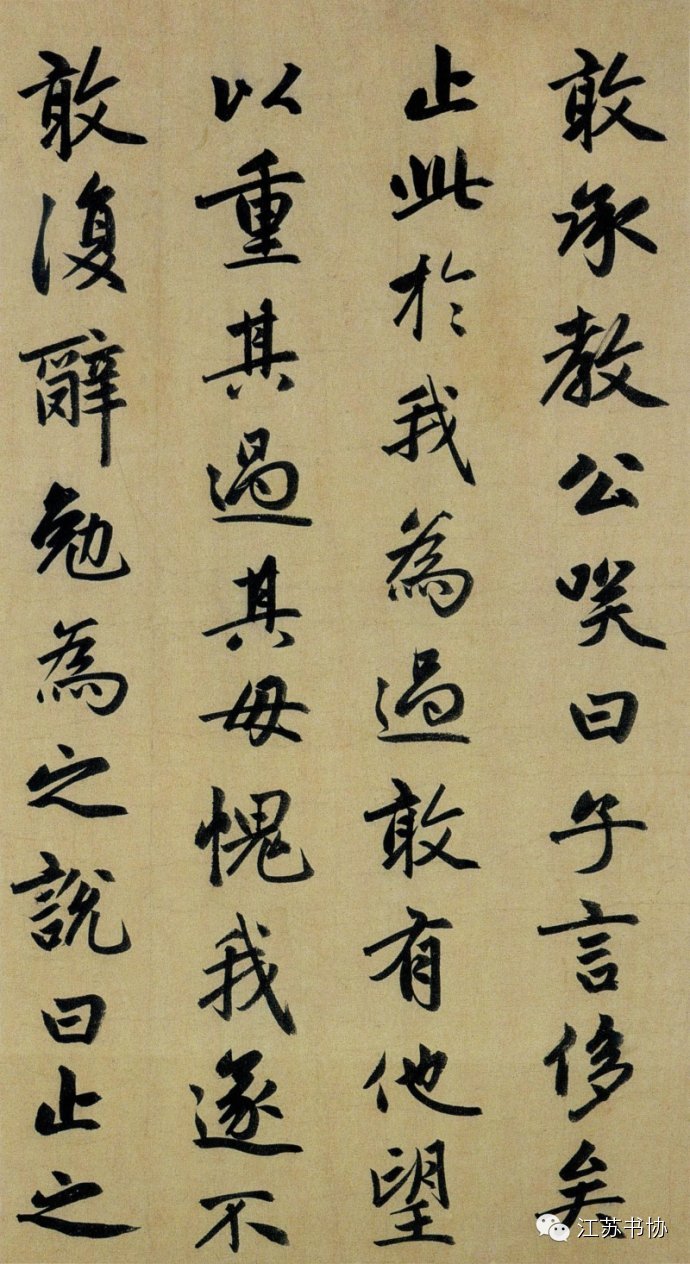 敢承教公笑曰子言侈矣
止此於我為過敢有他望
以重其過其毋愧我遂不
敢復辭勉為之說曰止之
江苏书协